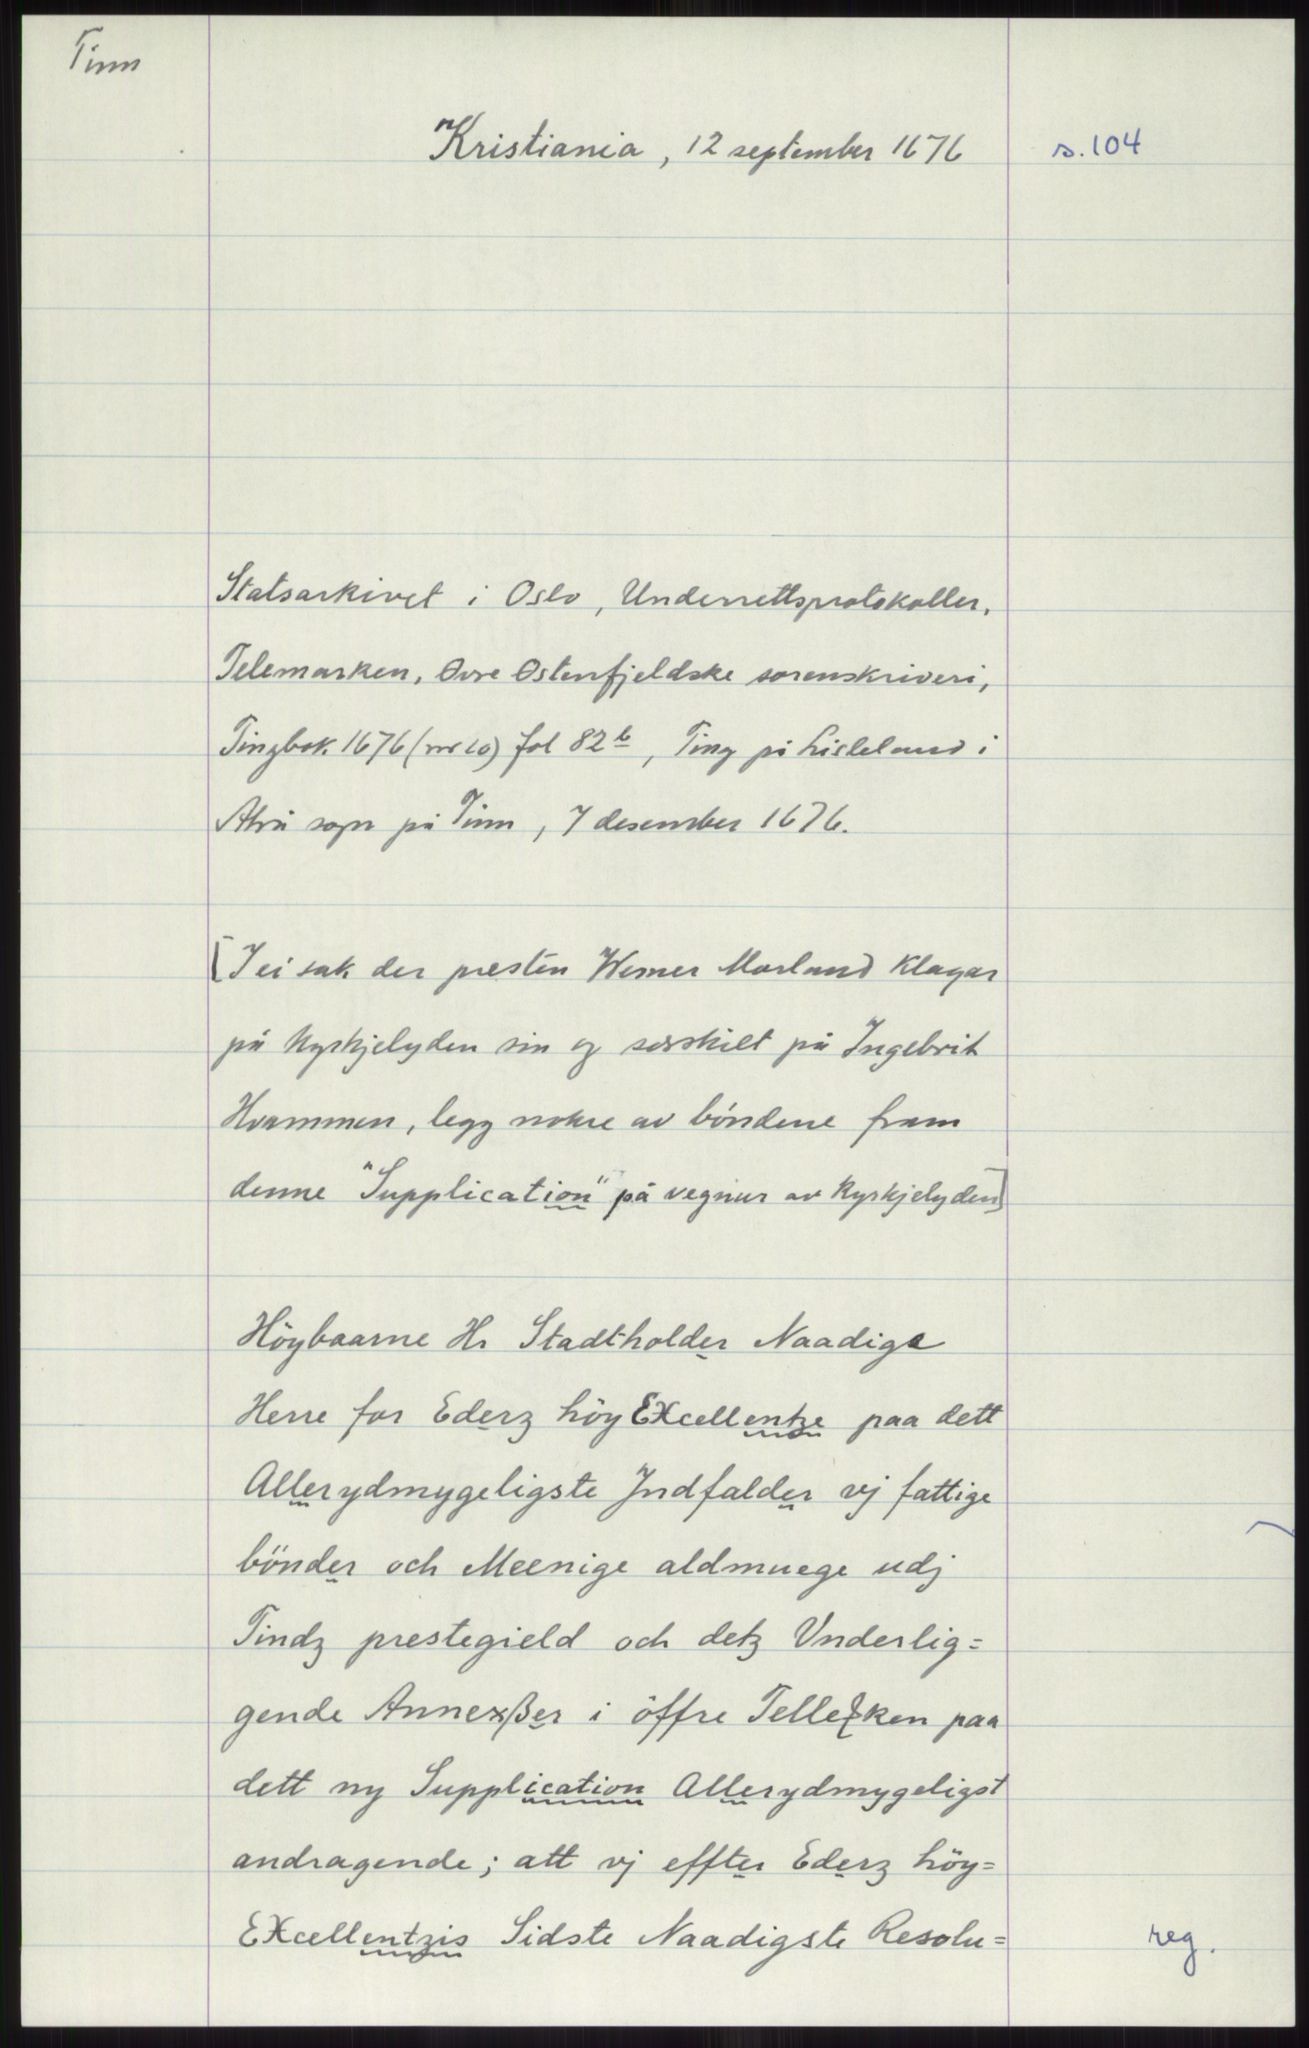 Tinn
"Kristiania, 12 september 1676
s. 104
Statsarkivet i Oslo, Underrettsprotokoller,
Telemarken, Øvre Østenfjeldske sorenskriveri,
Tingbok 1676 (nr 10) fol 82 b, Ting på Lisleland i
Atrå sogn på Tinn, 7 desember 1676.
[I ei sak der presten Werner Morland klagar
på kyrkjelyden sin og serskilt på Ingebrit
Hvammen, legg nokre av bóndene fram
denne "Supplication" på vegnur av kyrkjelyden]
Höybaarne Hr Stadtholder Naadige
Herre for Ederz höy EXcellentze paa dett
Allerydmygeligste Jndfalder vj fattige
bönder och Meenige aldmuege udj
Tindz prestegield och detz Vnderlig=
gende Annexßer i öffre Telleken paa
dett ny Supplication Allerydmygeligst
andragende; att vj effter Ederz höy=
EXcellentzis Sidste Naadigste Resolu=
reg.